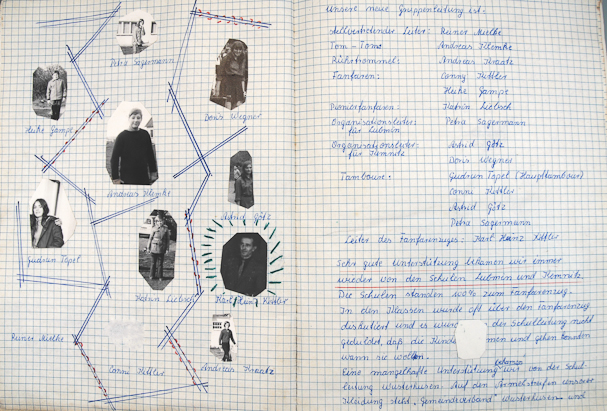 Petra Sagermann
Heike Gampe
Doris Wegner
Andreas Klemke
Astrid Götz
Gudrun Topel
Katrin Liebsch
Karl Heinz Kittler
Rainer Mielke
Conni Kittler
Andreas Kraatz
unsere neue Gruppenleitung ist:
stellvertretender Leiter: Rainer Mielke
Tom-Toms Andreas Klemke
Rührtrommel: Andreas Kraatz
Fanfaren: Conny Kittler
Heike Gampe
Pionierfanfaren: Katrin Liebsch
Organisationsleiter Petra Sagermann
für Lubmin
Organisationsleiter Astrid Götz
für Kemnitz
Doris Wegner
Tamboure: Gudrun Topel (Haupttambour)
Conni Kittler
Astrid Götz
Petra Sagermann
Leiter des Fanfarenzuges: Karl Heinz Kittler
Sehr gute Unterstützung bekamen wir immer
wieder von den Schulen Lubmin und Kemnitz.
Die Schulen standen 100% zum Fanfarenzug.
In den Klassen wurde oft über den Fanfarenzug
diskutiert und es der Schulleitung nicht
geduldet, daß die Kinder und gehen konnten
wann sie wollen.
Eine mangelhafte Unterstützung bekamen wir von der Schul-
leitung Wusterhusen. Auf den Ärmelstreifen unserer
Kleidung steht „Gemeindeverband" Wusterhusen und